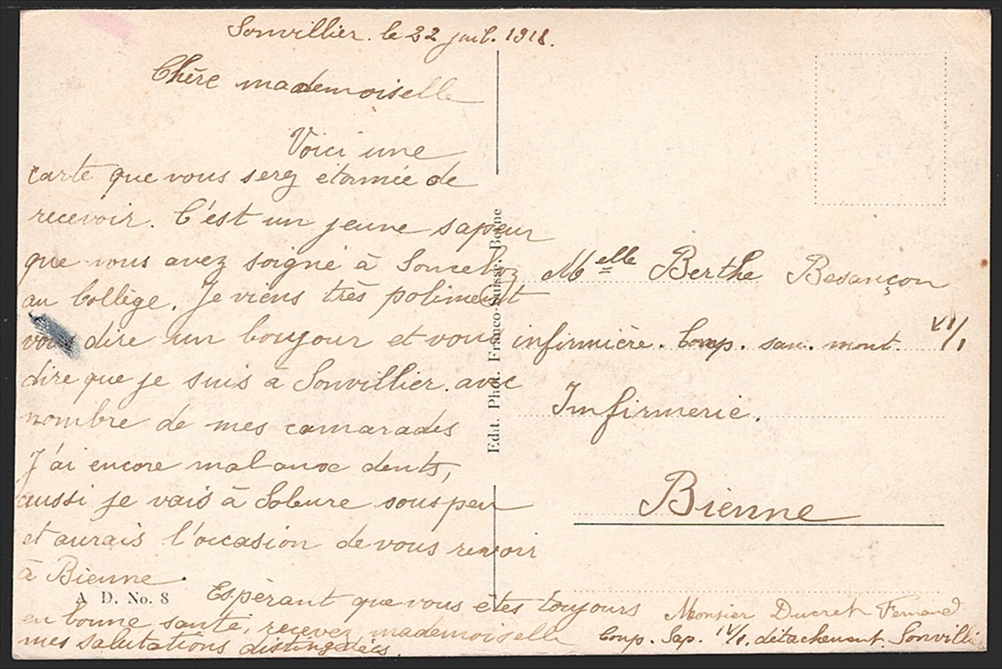 Sonvillier. le 22 juil. 1918.
Chère mademoiselle
Voici une
carte que vous serez étonnée de
recevoir. C'est un jeune sapeur
que vous avez soigné à Sonceboz
au Collège. Je viens très poliment
vous dire un boujour et vous
dire que je suis à Sonvillier. avec
nombre de mes camarades
J'ai encore mal aux dents,
aussi je vais à Soleure sous peu
et aurais l'occasion de vous revoir
à Bienne.
Espèrant que vous etes toujours
en bonne santé, recevez mademoiselle
mes salutations distinguées.
A D. No. 8
Edit. Phot. Franco-Suisse, Berne
Melle Berthe Besançon
infirmière. Comp. san. mont. VI/1
Infirmerie.
Bienne
Monsier Ducret Fernand
Comp. Sap. IV/1. détachement. Sonvilli